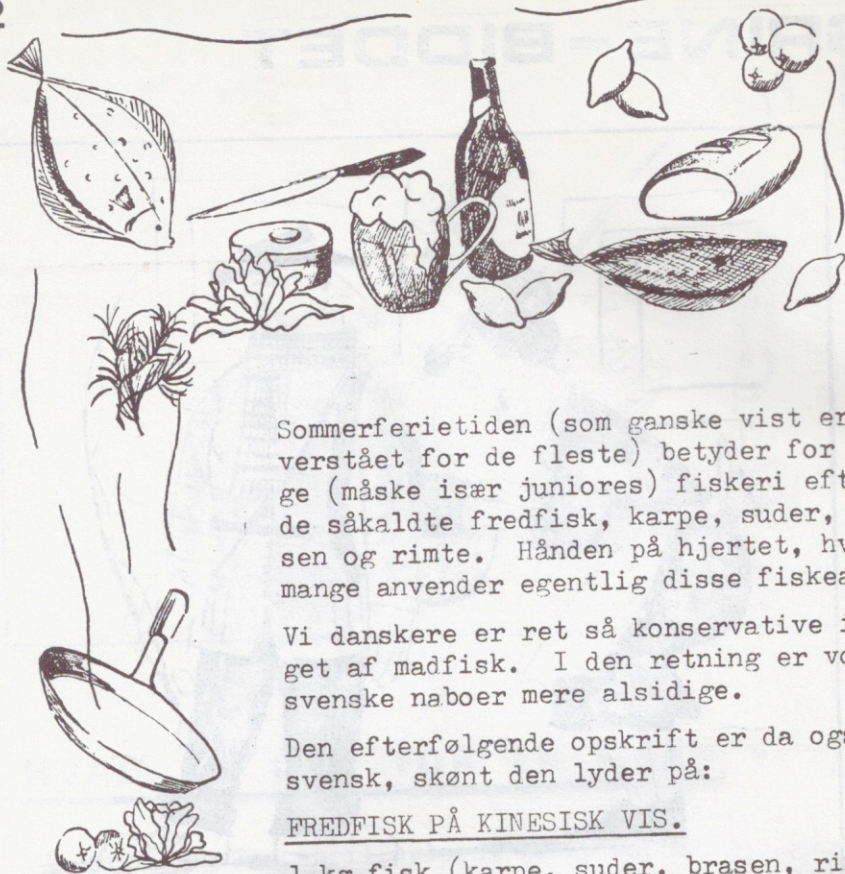 2
Sommerferietiden (som ganske vist er
verstået for de fleste) betyder for
ge (måske især juniores) fiskeri eft
de såkaldte fredfisk, karpe, suder,
sen og rimte. Hånden på hjertet, hv
mange anvender egentlig disse fiskea
Vi danskere er ret så konservative i
get af madfisk. I den retning er vo
svenske naboer mere alsidige.
Den efterfølgende opskrift er da ogs
svensk, skønt den lyder på:
FREDFISK PÅ KINESISK VIS.
1 kg fisk (karpe, suder, brasen, ri